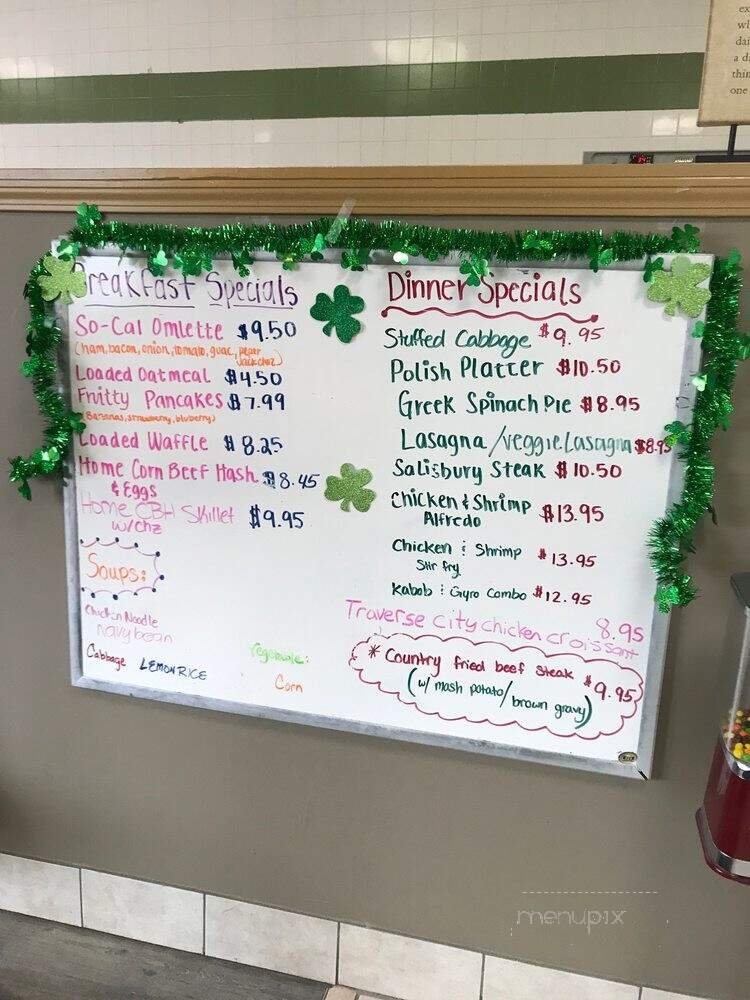 Breakfast Specials
So-Cal Omlette $9.50
(ham, bacon, onion, tomato, guac, peper
Jack chz)
Loaded Oatmeal $4.50
Fruitty Pancakes $7.99
(Bananas, strawberry, bluberry)
Loaded Waffle $8.25
Home Corn Beef Hash $8.45
& Eggs
Home CBH Skillet $9.95
w/chz
Soups:
Chicken Noodle
navy bean
Cabbage LEMON RICE
Vegetable:
Corn
Dinner Specials
Stuffed Cabbage $9.95
Polish Platter $10.50
Greek Spinach Pie $8.95
Lasagna/veggie Lasagna $8.95
Salisbury Steak $10.50
Chicken & Shrimp $13.95
Alfredo
Chicken & Shrimp $13.95
Stir fry
Kabob & Gyro Combo $12.95
Traverse City chicken croissant 8.95
* Country fried beef steak $9.95
(w/ mash potato/brown gravy)
a di
thin
one
menupix